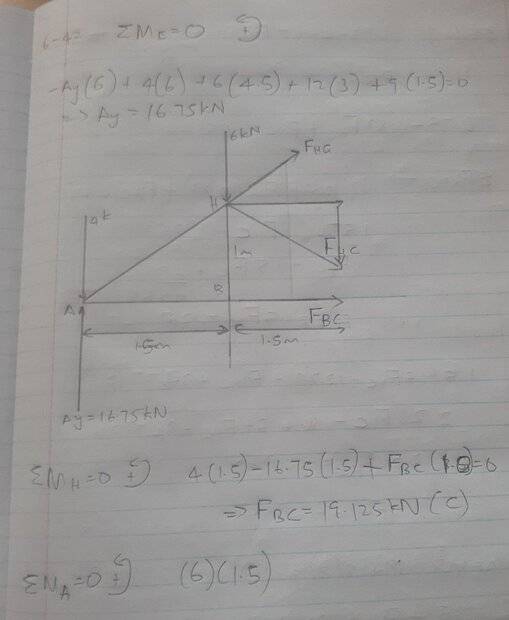 6-4= ΣM_E=0 ↺+
-Ay(6) + 4(6) + 6(4.5) + 12(3) + 9(1.5)=0
=> Ay = 16.75kN
6kN
F_HG
H
4k
1m
F_HC
A
B
F_BC
1.5m
1.5m
Ay=16.75kN
ΣM_H=0 ↺+ 4(1.5)-16.75(1.5)+F_BC(1.0)=0
=> F_BC=19.125kN (C)
ΣM_A=0 ↺+ (6)(1.5)